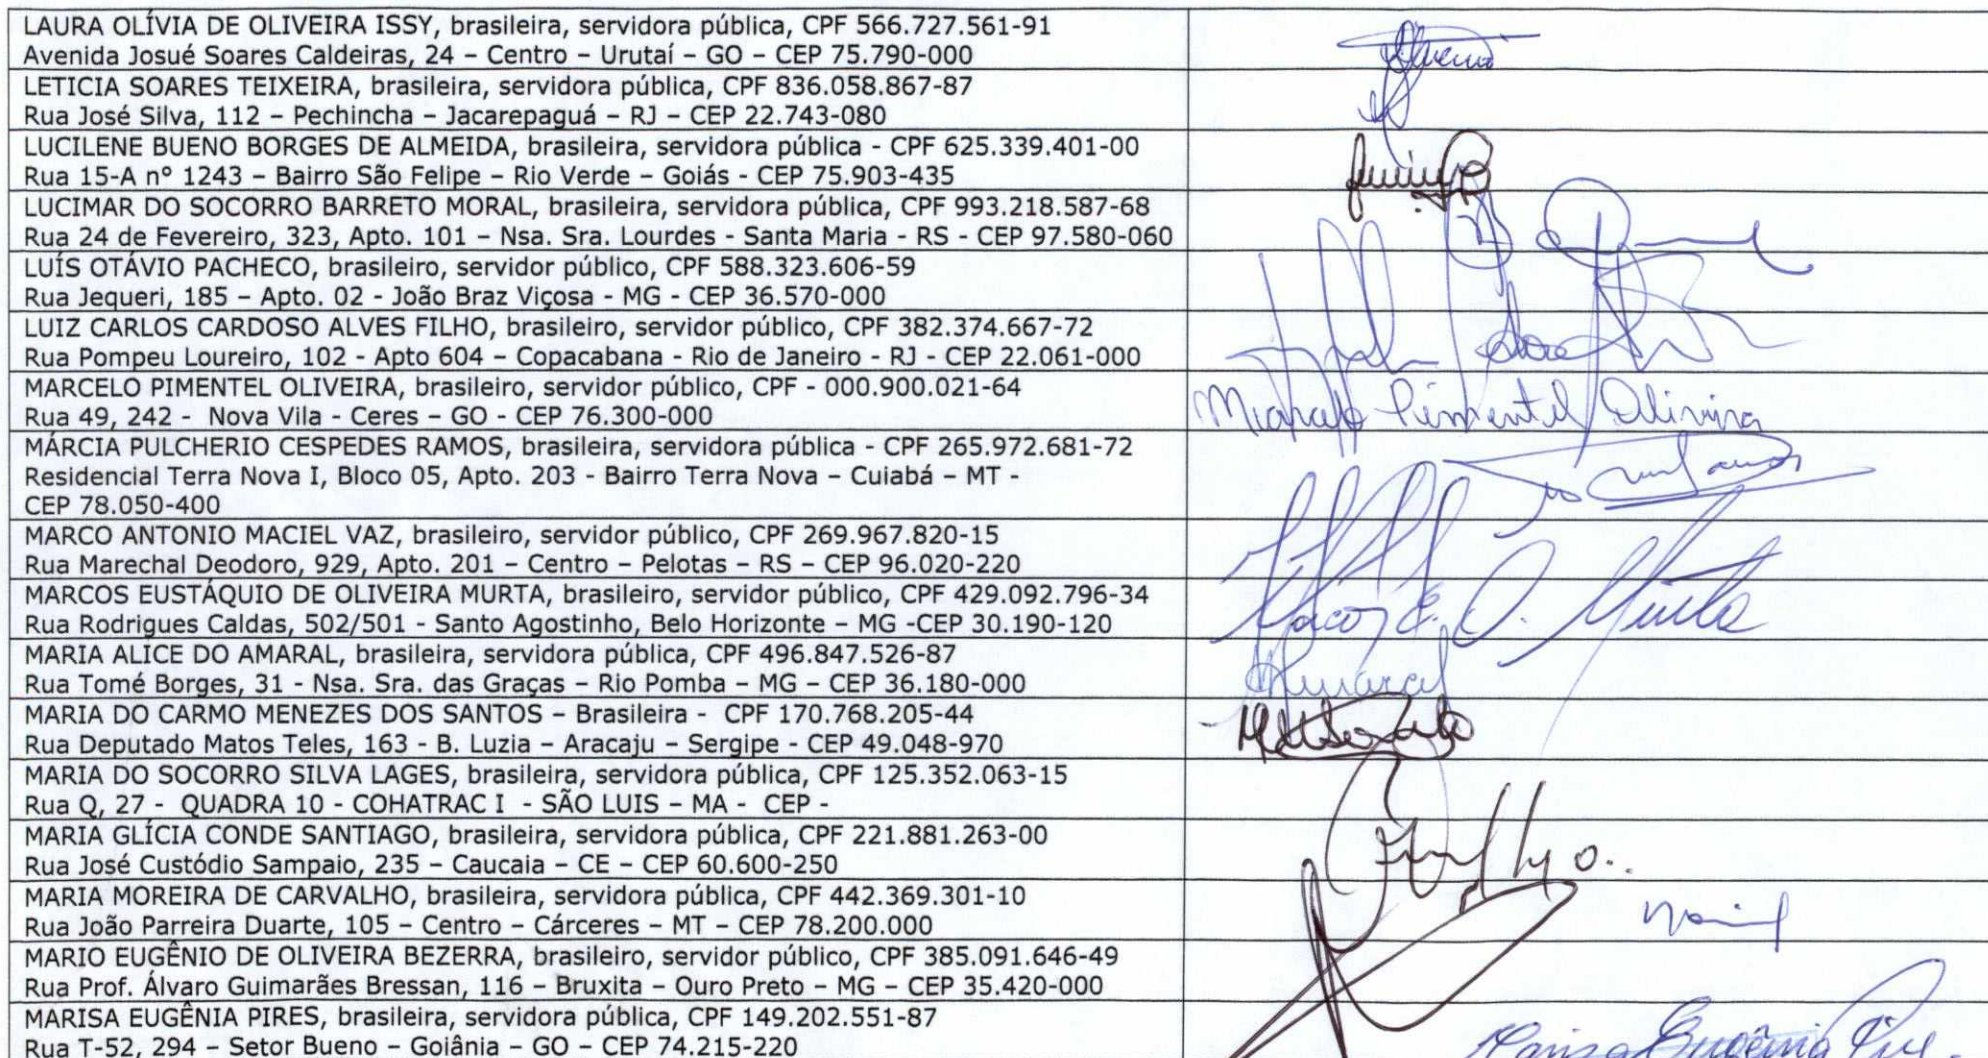 LAURA OLÍVIA DE OLIVEIRA ISSY, brasileira, servidora pública, CPF 566.727.561-91
Avenida Josué Soares Caldeiras, 24 – Centro – Urutaí – GO – CEP 75.790-000
LETICIA SOARES TEIXEIRA, brasileira, servidora pública, CPF 836.058.867-87
Rua José Silva, 112 – Pechincha – Jacarepaguá – RJ – CEP 22.743-080
LUCILENE BUENO BORGES DE ALMEIDA, brasileira, servidora pública - CPF 625.339.401-00
Rua 15-A nº 1243 – Bairro São Felipe – Rio Verde – Goiás - CEP 75.903-435
LUCIMAR DO SOCORRO BARRETO MORAL, brasileira, servidora pública, CPF 993.218.587-68
Rua 24 de Fevereiro, 323, Apto. 101 – Nsa. Sra. Lourdes - Santa Maria - RS - CEP 97.580-060
LUÍS OTÁVIO PACHECO, brasileiro, servidor público, CPF 588.323.606-59
Rua Jequeri, 185 – Apto. 02 - João Braz Viçosa - MG - CEP 36.570-000
LUIZ CARLOS CARDOSO ALVES FILHO, brasileiro, servidor público, CPF 382.374.667-72
Rua Pompeu Loureiro, 102 - Apto 604 – Copacabana - Rio de Janeiro - RJ - CEP 22.061-000
MARCELO PIMENTEL OLIVEIRA, brasileiro, servidor público, CPF - 000.900.021-64
Rua 49, 242 - Nova Vila - Ceres – GO - CEP 76.300-000
Marcelo Pimentel Oliveira
MÁRCIA PULCHERIO CESPEDES RAMOS, brasileira, servidora pública - CPF 265.972.681-72
Residencial Terra Nova I, Bloco 05, Apto. 203 - Bairro Terra Nova – Cuiabá – MT -
CEP 78.050-400
MARCO ANTONIO MACIEL VAZ, brasileiro, servidor público, CPF 269.967.820-15
Rua Marechal Deodoro, 929, Apto. 201 – Centro – Pelotas – RS – CEP 96.020-220
MARCOS EUSTÁQUIO DE OLIVEIRA MURTA, brasileiro, servidor público, CPF 429.092.796-34
Rua Rodrigues Caldas, 502/501 - Santo Agostinho, Belo Horizonte – MG -CEP 30.190-120
Marcos E. O. Murta
MARIA ALICE DO AMARAL, brasileira, servidora pública, CPF 496.847.526-87
Rua Tomé Borges, 31 - Nsa. Sra. das Graças – Rio Pomba – MG – CEP 36.180-000
Amaral
MARIA DO CARMO MENEZES DOS SANTOS – Brasileira - CPF 170.768.205-44
Rua Deputado Matos Teles, 163 - B. Luzia – Aracaju – Sergipe - CEP 49.048-970
MARIA DO SOCORRO SILVA LAGES, brasileira, servidora pública, CPF 125.352.063-15
Rua Q, 27 - QUADRA 10 - COHATRAC I - SÃO LUIS – MA - CEP -
MARIA GLÍCIA CONDE SANTIAGO, brasileira, servidora pública, CPF 221.881.263-00
Rua José Custódio Sampaio, 235 – Caucaia – CE – CEP 60.600-250
MARIA MOREIRA DE CARVALHO, brasileira, servidora pública, CPF 442.369.301-10
Rua João Parreira Duarte, 105 – Centro – Cárceres – MT – CEP 78.200.000
MARIO EUGÊNIO DE OLIVEIRA BEZERRA, brasileiro, servidor público, CPF 385.091.646-49
Rua Prof. Álvaro Guimarães Bressan, 116 – Bruxita – Ouro Preto – MG – CEP 35.420-000
MARISA EUGÊNIA PIRES, brasileira, servidora pública, CPF 149.202.551-87
Rua T-52, 294 – Setor Bueno – Goiânia – GO – CEP 74.215-220
Marisa Eugênia Pires